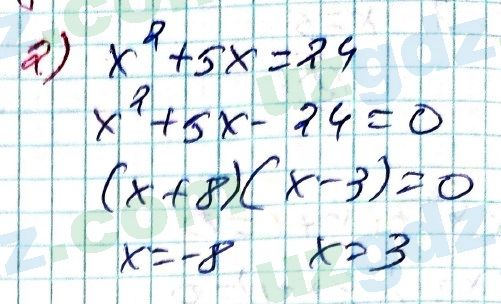 2) x² + 5x = 24
x² + 5x - 24 = 0
(x + 8)(x - 3) = 0
x = -8 x = 3